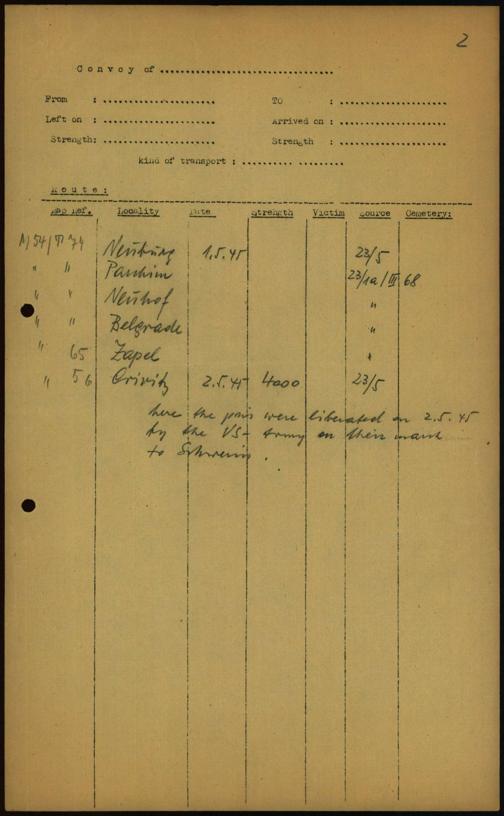 2
Convoy of ................................
From : .................... TO : ....................
Left on : .................... Arrived on : ....................
Strength: .................... Strength : ....................
kind of transport : .......... .........
Route:
Map Ref. Locality Date Strength Victim Source Cemetery:
N/54/ 74 Neuburg 1.5.45 23/5
" " Parchim 23/1a/III 68
" " Neuhof "
" " Belgrade "
" 65 Zapel "
" 56 Crivitz 2.5.45 4000 23/5
here the pris were liberated on 2.5.45
by the US-Army on their march
to Schwerin.